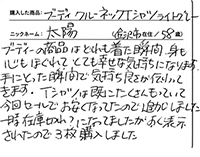 購入した商品: ブーディ クルーネックTシャツ ライトグレー
ニックネーム: 太陽 金沢市在住 / 58歳
ブーディの商品はどれも着た瞬間、身も
心もほぐれてとても幸せな気持ちになります。
手にとった瞬間で気持ち良さが伝わって
きます。Tシャツは既にたくさんもっていて
今回セールでお安くなってたので追加しました
一時在庫切れになってましたが、又表示
されたので3枚購入しました